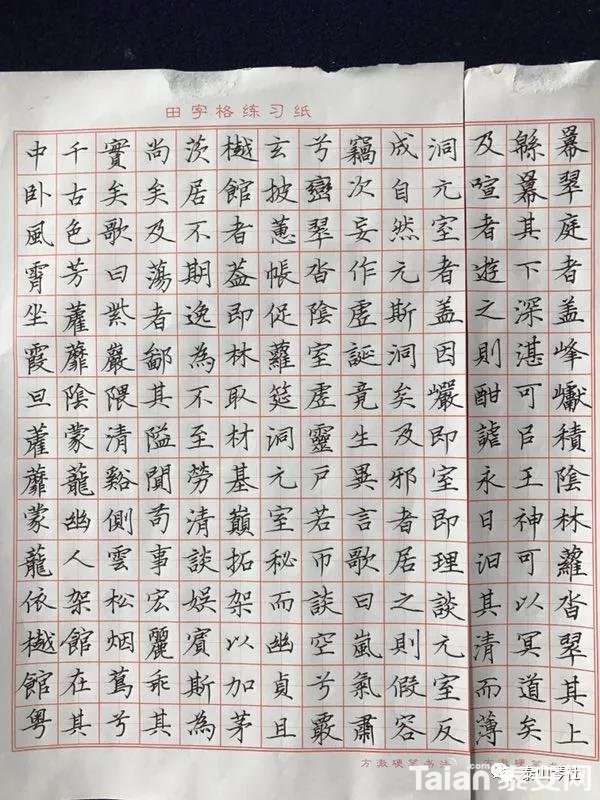 羃翠庭者盖峰巘積陰林蘿沓翠其上
緜羃其下深湛可㠯王神可以冥道矣
及喧者遊之則酣謔永日汩其清而薄
洞元室者盖因巖即室即理談元室反
成自然元斯洞矣及邪者居之則假容
竊次妄作虛誕竟生異言歌曰嵐氣肅
兮巒翠沓陰室虛靈户若帀談空兮覈
玄披蕙帳促蘿筵洞元室秘而幽貞且
樾館者葢即林取材基巔拓架以加茅
茨居不期逸為不至勞清談娛賓斯為
尚矣及蕩者鄙其隘聞苟事宏麗乖其
實矣歌曰紫巖隈清谿側雲松烟蔦兮
千古色芳藿蘼陰蒙蘢幽人架館在其
中卧風霄坐霞旦藿蘼蒙蘢依樾館粵
田字格练习纸
方波硬笔书法
泰山琴社
Taian泰安网